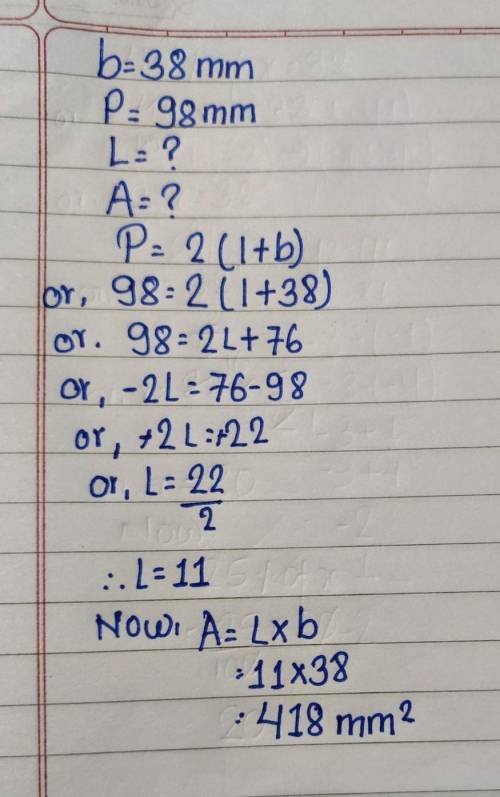 b=38 mm
P= 98 mm
L= ?
A= ?
P= 2 (l+b)
or, 98=2 (l+38)
or. 98=2L+76
or, -2L=76-98
or, +2L=+22
or, L= 22/2
∴ L=11
Now, A= L×b
=11×38
= 418 mm²